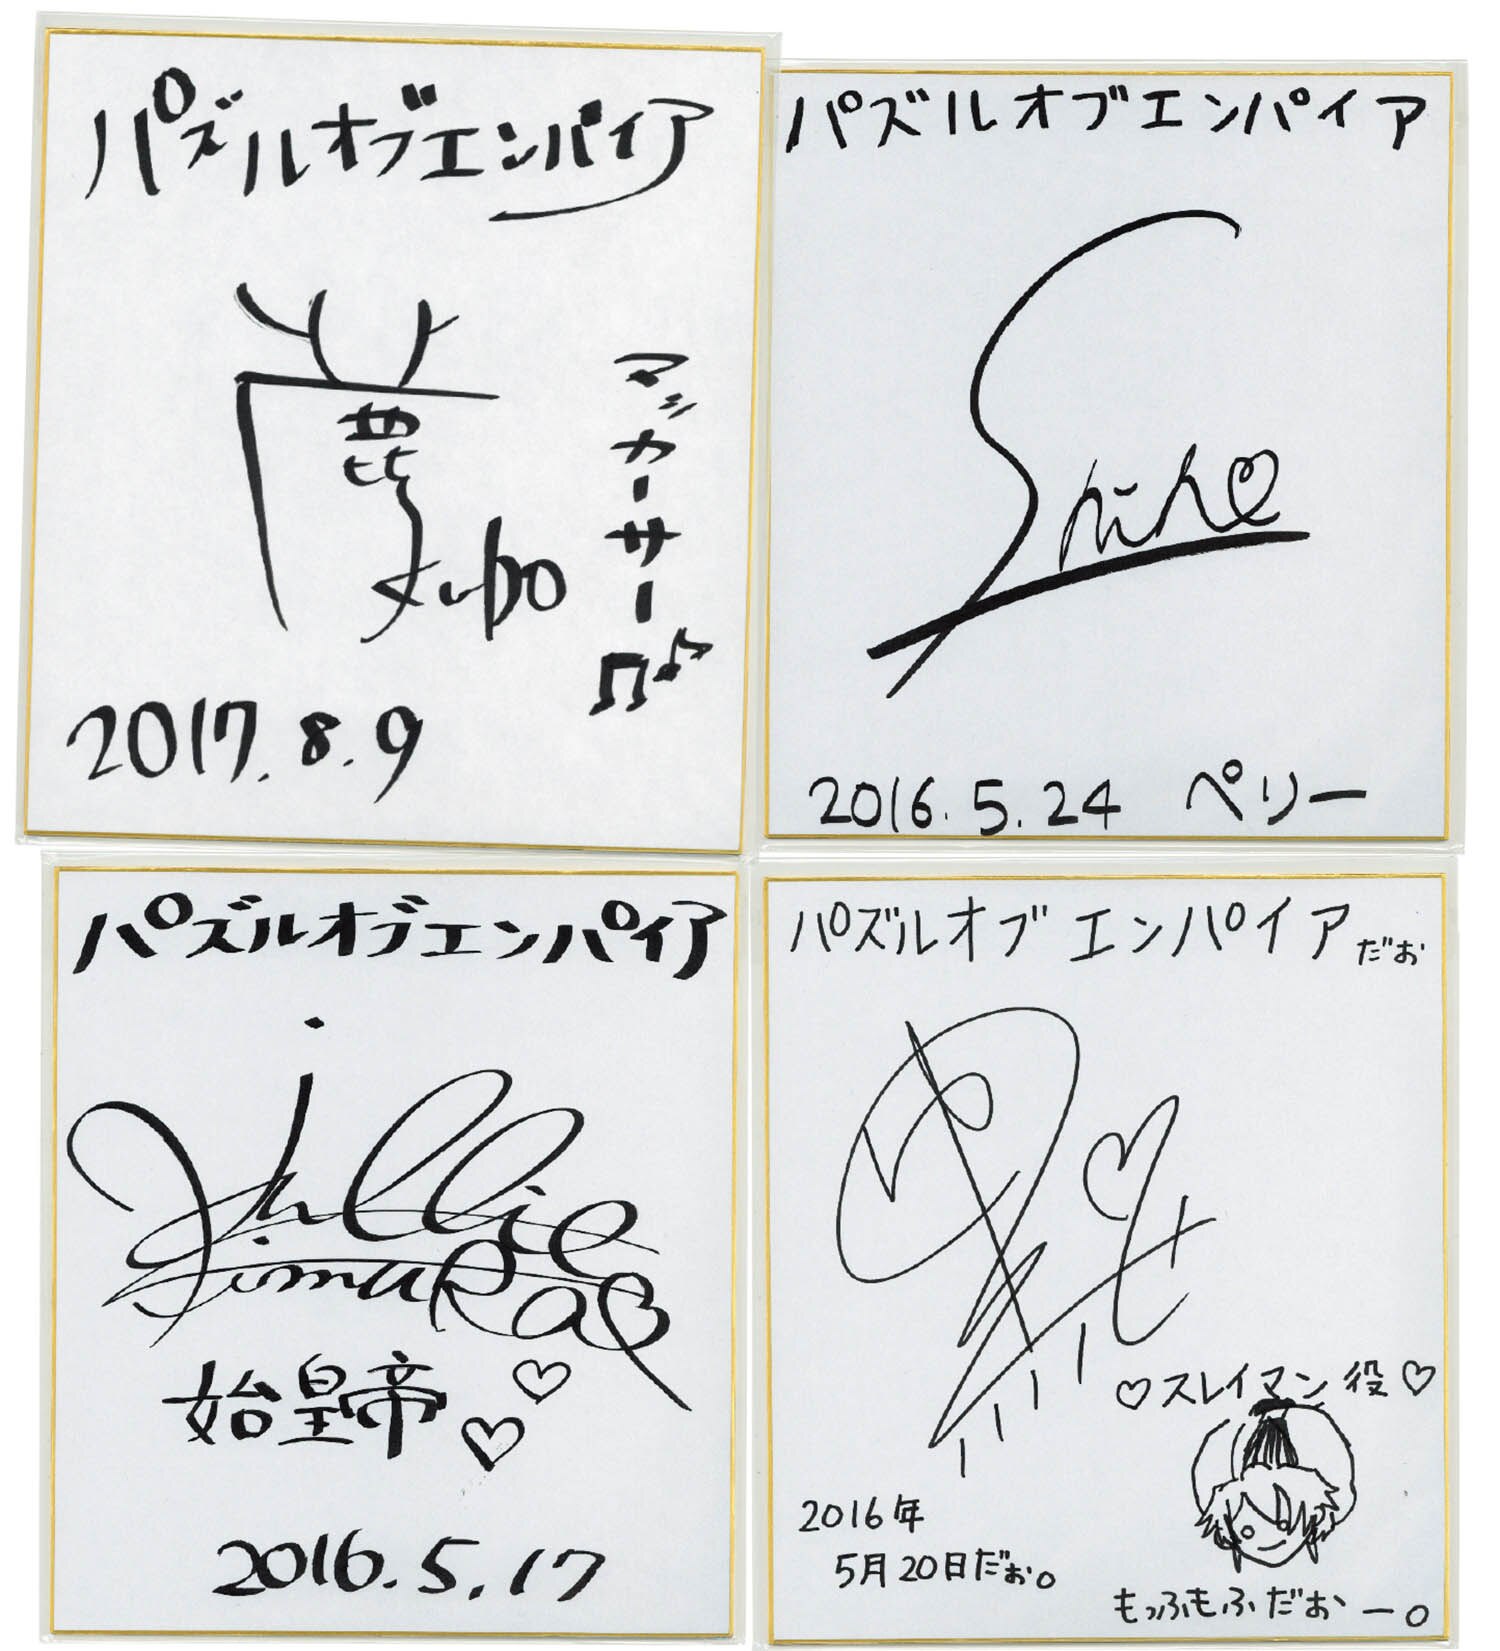 パズルオブエンパイア
マッカーサー
2017.8.9
パズルオブエンパイア
Shiho
2016.5.24 ペリー
パズルオブエンパイア
始皇帝
2016.5.17
パズルオブエンパイアだぉ
♡スレイマン役♡
2016年
5月20日だぉ。
もっふもふだぉー。